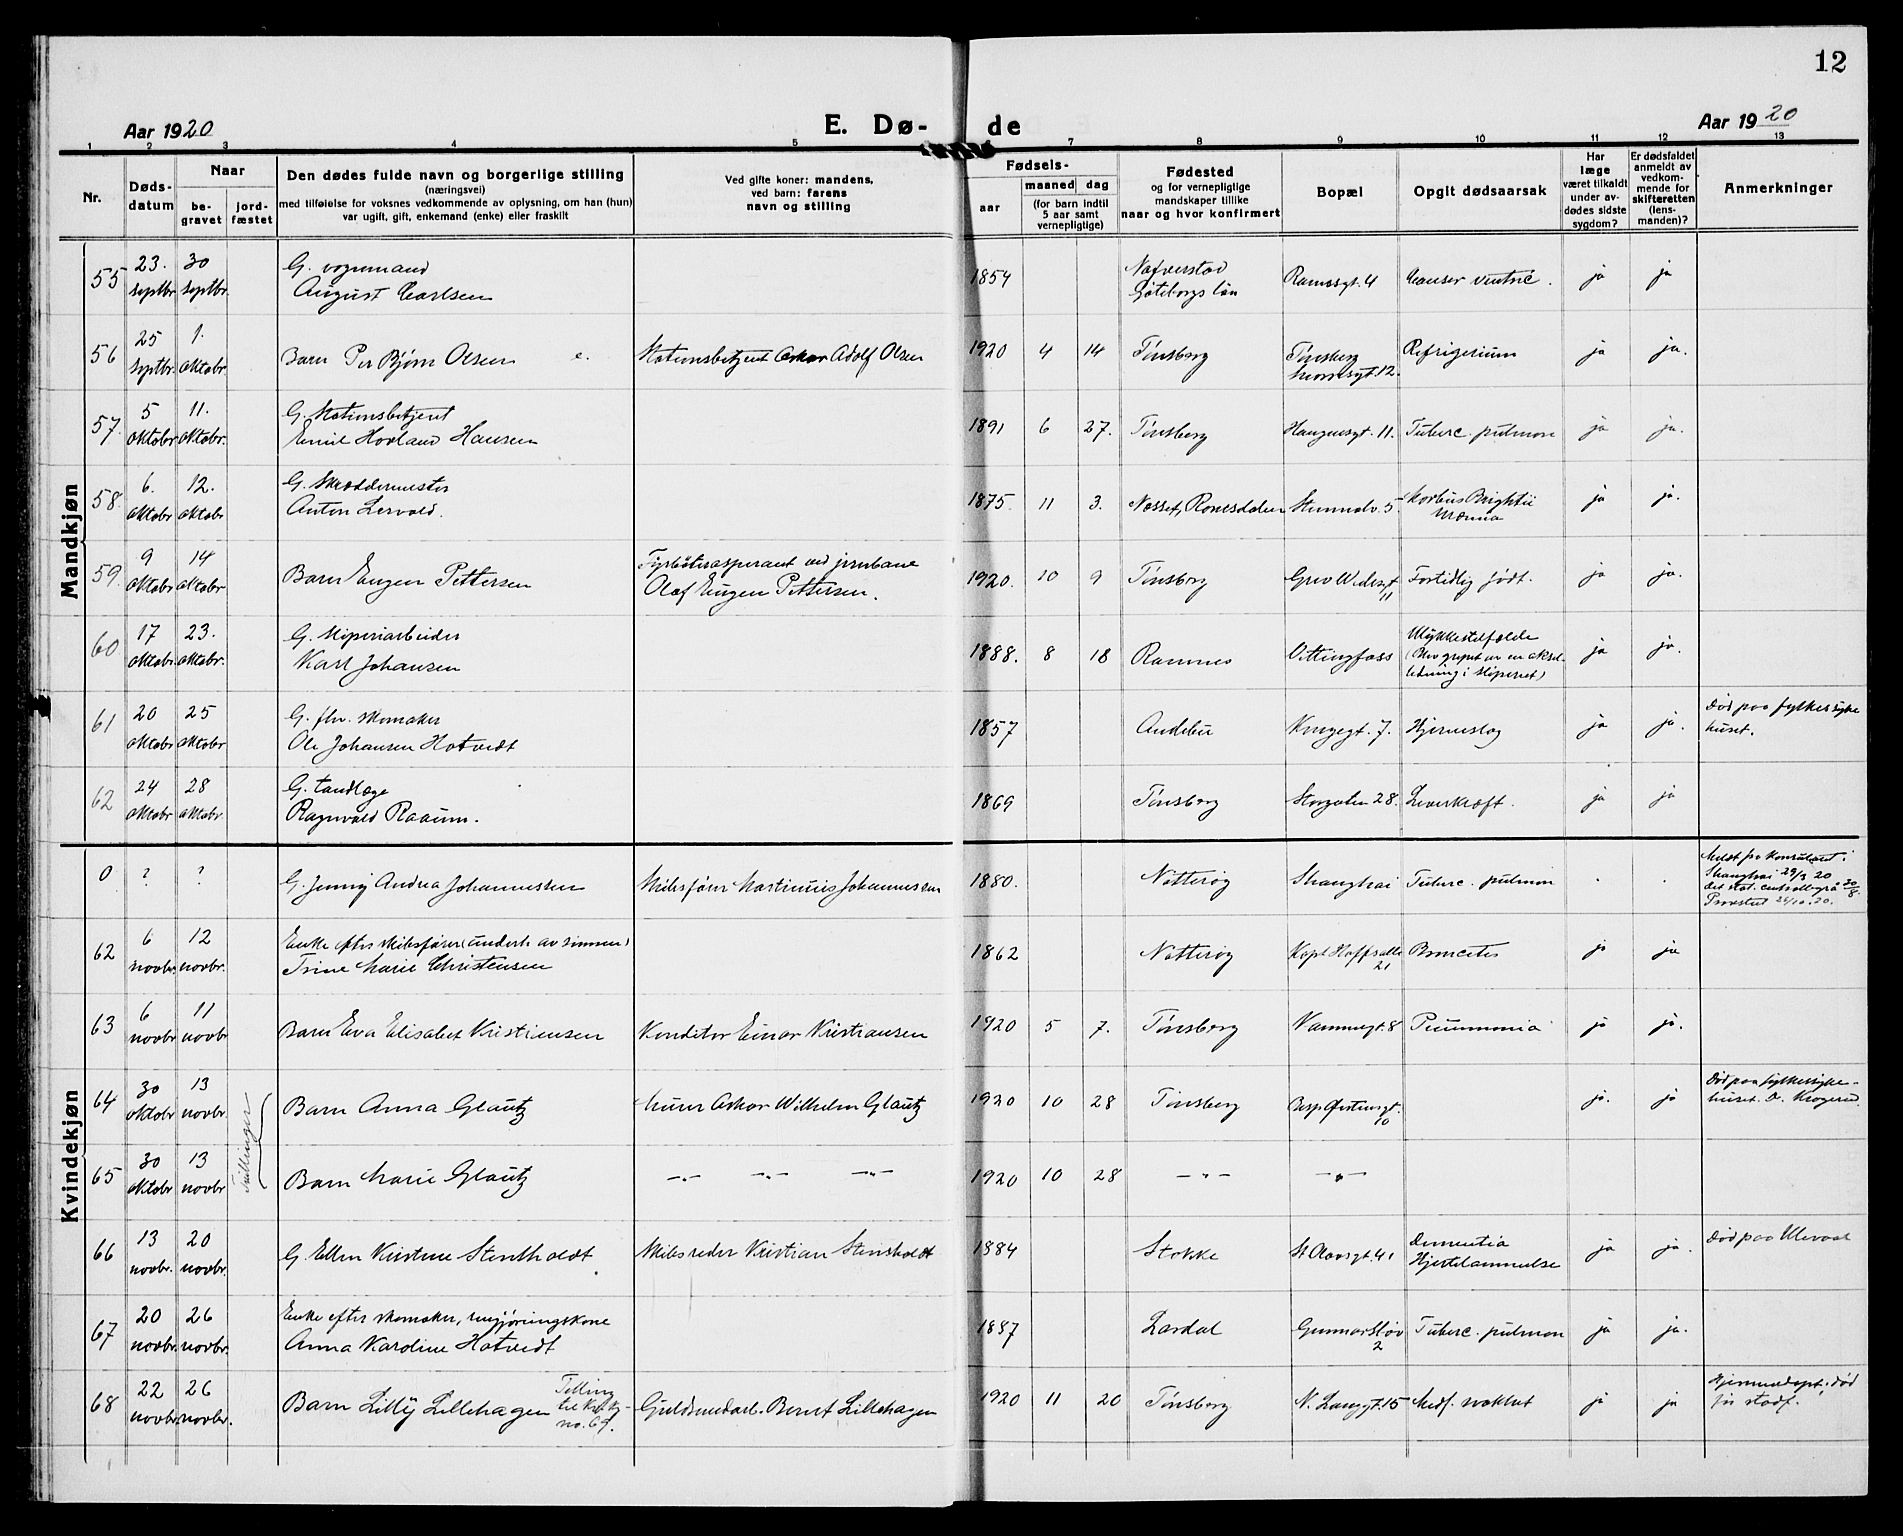 12
Aar 1920
E. Dø- de
Aar 1920
1 2 3 4 5 7 8 9 10 11 12 13
Nr.
Døds-
datum
Naar
be-
gravet
jord-
fæstet
Den dødes fulde navn og borgerlige stilling
(næringsvei)
med tilføielse for voksnes vedkommende av oplysning, om han (hun)
var ugift, gift, enkemand (enke) eller fraskilt
Ved gifte koner: mandens,
ved barn: farens
navn og stilling
Fødsels-
aar
maaned dag
(for barn indtil
5 aar samt
vernepligtige)
Fødested
og for vernepligtige
mandskaper tillike
naar og hvor konfirmert
Bopæl
Opgit dødsaarsak
Har
læge
været tilkaldt
under av-
dødes sidste
sygdom?
Er dødsfaldet
anmeldt av
vedkom-
mende for
skifteretten
(lens-
manden)?
Anmerkninger
Mandkjøn
55 23. septbr. 30 septbr. G. vognmand
August Carlsen
1854 Nafverstad
Göteborgs län Ramsgt. 4 Cancer ventric. ja ja
56 25 septbr. 1. oktobr. Barn Per Bjørn Olsen e. Stationsbetjent Oskar Adolf Olsen 1920 4 14 Tønsberg Tønsberg
12. Refrigerium ja ja.
57. 5 oktobr. 11. oktobr. G. Stationsbetjent
Emil Hovland Hansen
1891 6 27. Tønsberg Haugersgt. 11. Tuberc. pulmon ja ja.
58. 6. oktobr 12. oktobr G. Skræddermester
Anton Lervold.
1875. 11 3. Nesset, Romsdalen 5 Morbus Brightii
Uræmia ja ja.
59. 9 oktobr 14 oktobr Barn Eugen Pettersen Fyrbøteraspirant ved jernbane
Olaf Eugen Pettersen. 1920. 10 9 Tønsberg Grev Wedelsgt
11 Fortidlig født. ja ja.
60 17 oktobr. 23. oktobr. G. Sliperiarbeider
Karl Johansen
1888. 8 18 Ramnes Vittingfoss Ulykkestilfælde
(Blev grepet av en aksel-
ledning i sliperiet) ja ja.
61 20 oktobr 25 oktobr G. fhv. skomaker
Ole Johansen Hotvedt
1857 Andebu 7. Hjerneslag ja ja. Død paa fylkessyke
huset.
62 24 oktobr 28 oktobr. G. tandlæge
Ragnvald Raaum.
1869 Tønsberg Storgaten 28. Leverkræft. ja ja
Kvindekjøn
0 ? ? G. Jenny Andrea Johannessen Skibsfører Martinius Johannessen 1880. Nøtterøy Shanghai Tuberc. pulmon Meldt fra konsulatet i
Shanghai 29/3 20
det stat. centralbyrå 30/8.
Provsten 26/10. 20.
62 6 novbr. 12 novbr. Enke efter skibsfører (underh. av sønnen)
Trine Marie Christensen
1862 Nøtterøy Kapt Hoffs alle
21 ja ja
63 6 novbr. 11 novbr. Barn Eva Elisabet Kristiansen Konditor Einar Kristiansen 1920 5 7. Tønsberg 8 Pneumonia ja ja.
64 30 oktobr 13 novbr. Tvillinger Barn Anna Glautz Murer Oskar Wilhelm Glautz 1920 10 28 Tønsberg
10 ja. ja Død paa fylkessyke-
huset. O. Krogerud.
65 30 oktobr 13 novbr Barn Marie Glautz -"- -"- -"- 1920 10 28 -"- -"-
66 13 novbr. 20 novbr. G. Ellen Kristine Stensholdt Skibsreder Kristian Stensholdt 1884 Stokke St. Olavsgt. 41 Dementia
Hjertelammelse ja ja. Død paa Ulevaal
67 20 novbr. 26 novbr. Enke efter skomaker, rengjøringskone
Anna Karoline Hotvedt
1887 Lardal Gunnarsbøv
2 Tuberc. pulmon ja ja.
68 22 novbr. 26 novbr. Barn Lilly Lillehagen Tvilling
til kvkj-
no. 69. Guldsmedarb. Bernt Lillehagen 1920 11 20 Tønsberg N. Langgt. 15 Medf. svakhet ja ja Hjemmedøpt; død
før stadf.